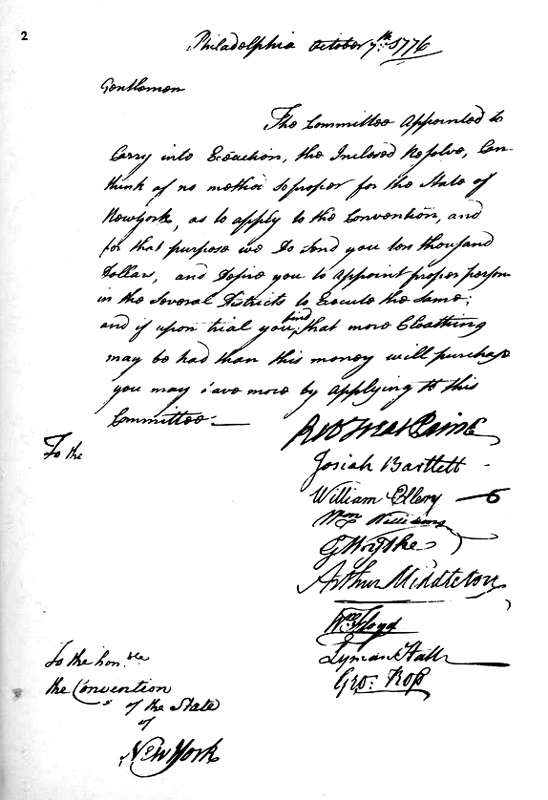 2
Philadelphia October 7th. 1776
Gentlemen
The Committee Appointed to
Carry into Execution, the Inclosed Resolve, Can
think of no method so proper for the State of
New York, as to apply to the Convention, and
for that purpose we do Send you ten thousand
Dollars, and Desire you to Appoint proper person
in the Several Districts to Execute the Same;
and if upon trial you find, that more Cloathing
may be had than this money will purchase
you may have more by Applying to this
Committee.
Robt Treat Paine
Josiah Bartlett
William Ellery
Wm Williams
G Wythe
Arthur Middleton
Wm Floyd
Lyman Hall
Geo: Ross
To the
To the honble
the Convention
of the State
of
New York